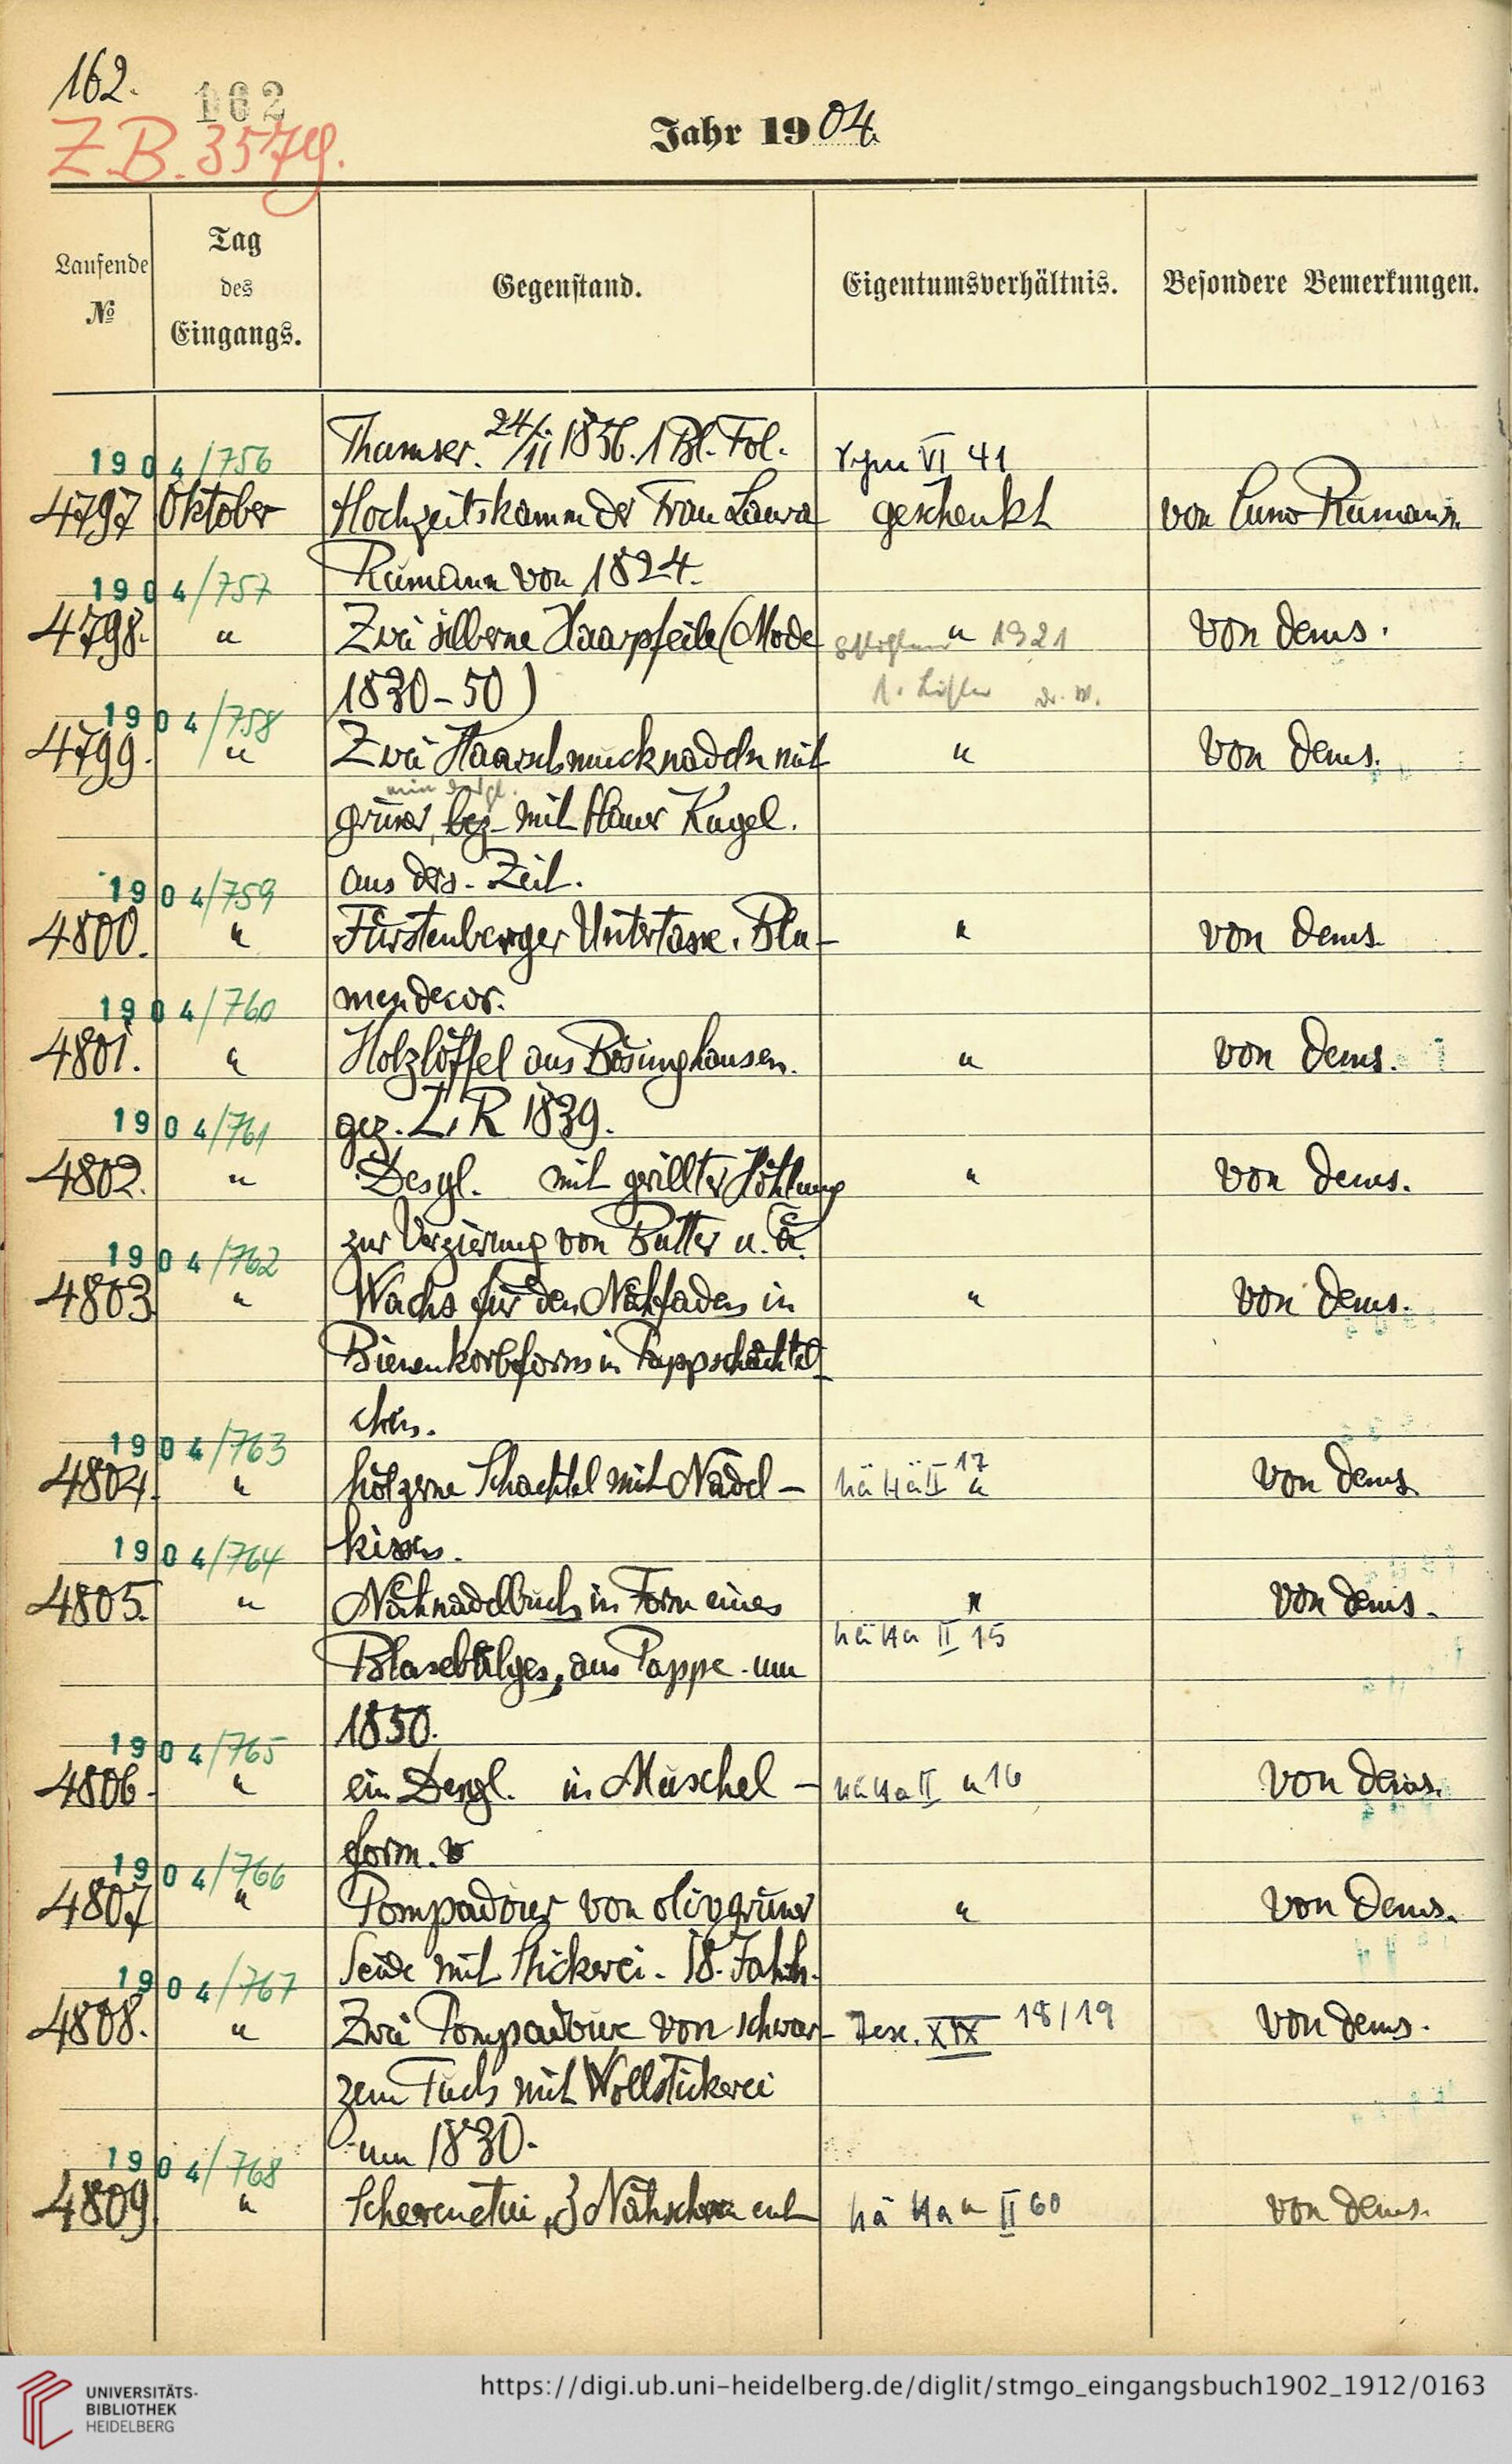 162.
162
Z.B. 3579.
Jahr 1904.
Laufende
№
Tag
des
Eingangs.
Gegenstand.
Eigentumsverhältnis.
Besondere Bemerkungen.
Thamser. 24/11 1856. 1 Bl. Fol.
1904/756
VI 41
4797 Oktober Hochzeitskamm der Frau Laura geschenkt von Cuno Rumann
Rumann von 1824.
1904/757
4798. " Zwei silberne Haarpfeile (Mode " 1921 von dems.
1830-50)
1904/758
4799. " Zwei Haarschmucknadeln mit " von dems.
grüner, bez. mit blauer Kugel.
aus ders. Zeit.
1904/759
4800. " Fürstenberger Untertasse. Blu- " von dems.
mendecor.
1904/760
4801. " Holzlöffel aus Bösinghausen. " von dems.
gez. L. R 1839.
1904/761
4802. " Desgl. mit gerillter Höhlung " von dems.
zur Verzierung von Butter u. ä.
1904/762
4803 " Wachs für den Nähfaden in " von dems.
Bienenkorbform in Pappschachtel-
chen.
1904/763
4804. " hölzerne Schachtel mit Nadel- II 17 " von dems.
kissen.
1904/764
4805. " Nähnadelbuch in Form eines " von dems.
II 15
Blasebalges, aus Pappe. um
1850.
1904/765
4806. " ein Desgl. in Muschel- II " 16 von dems.
form.
1904/766
4807 " Pompadour von olivgrüner " von dems.
Seide mit Stickerei. 18. Jahrh.
1904/767
4808. " Zwei Pompadoure von schwar- XIX 18/19 von dems.
zem Tuch mit Wollstickerei
um 1830.
1904/768
4809. " Scherenetui, 3 " II 60 von dems.
UNIVERSITÄTS-
BIBLIOTHEK
HEIDELBERG
https://digi.ub.uni-heidelberg.de/diglit/stmgo_eingangsbuch1902_1912/0163